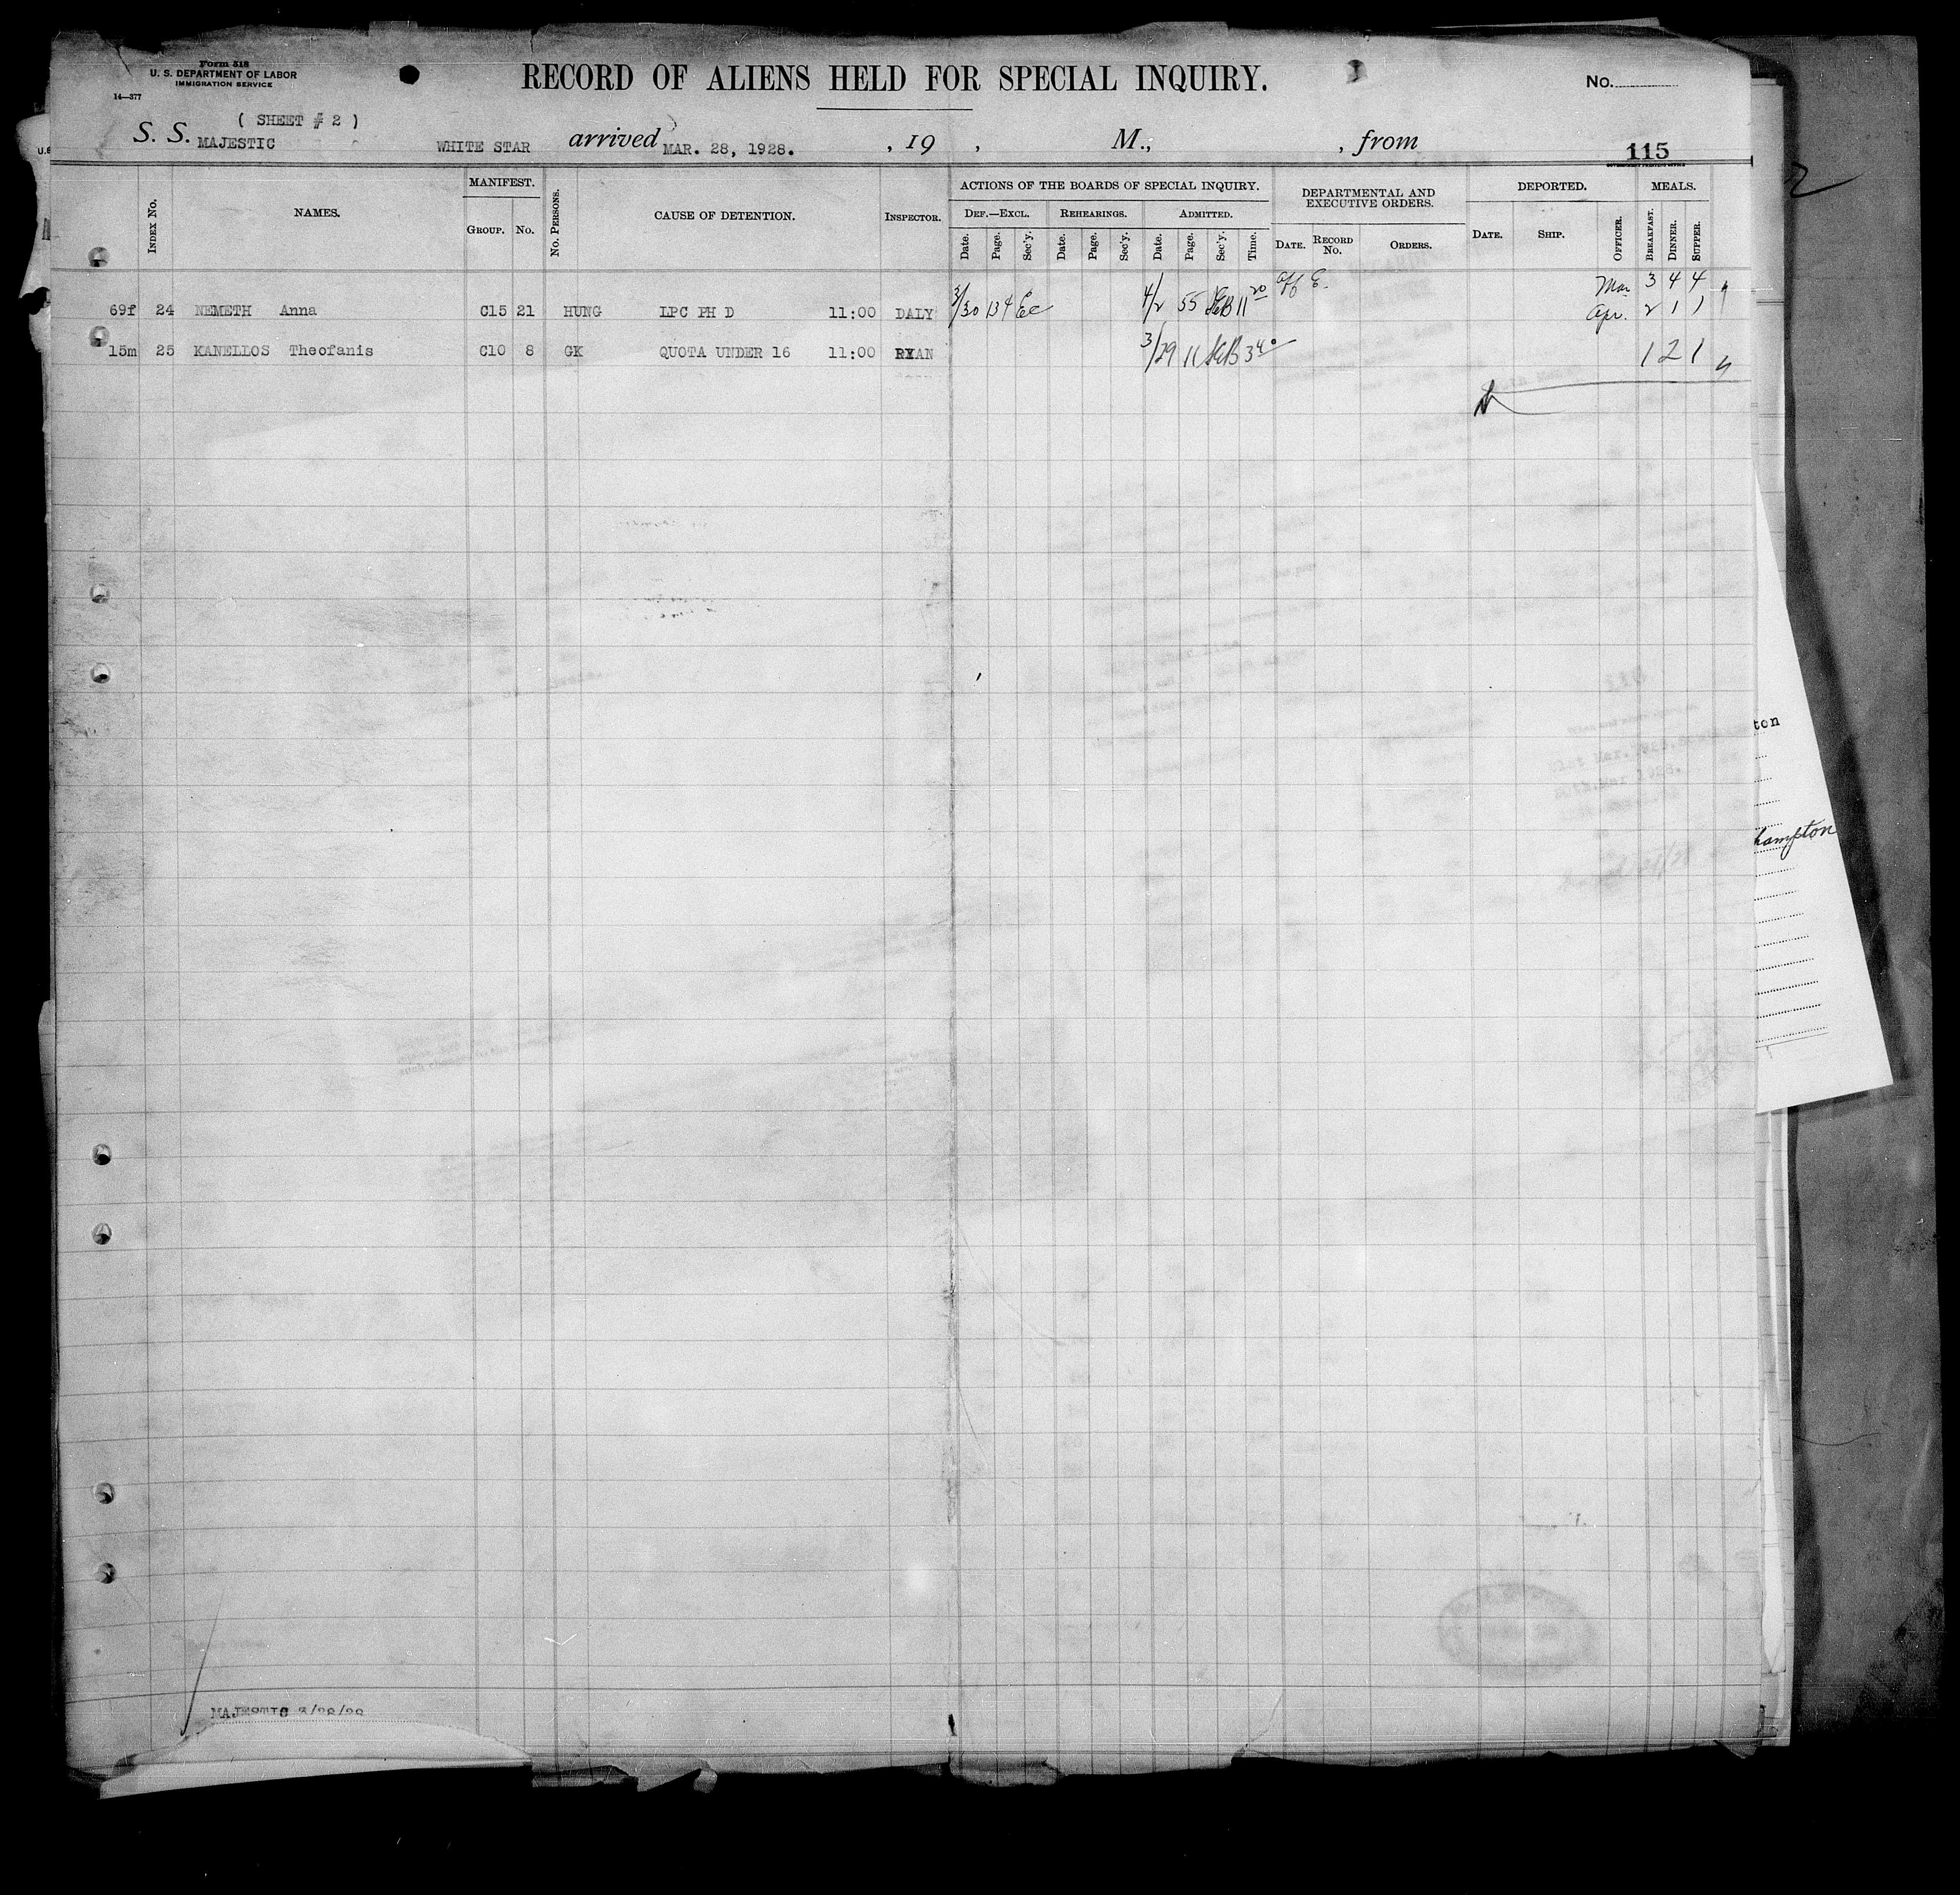 Form 518
U. S. DEPARTMENT OF LABOR
IMMIGRATION SERVICE
14—377
RECORD OF ALIENS HELD FOR SPECIAL INQUIRY.
No.
( SHEET # 2 )
S. S. MAJESTIC WHITE STAR arrived MAR. 28, 1928. , 19 , M., , from
115
INDEX No. NAMES. MANIFEST. GROUP. No. No. PERSONS. CAUSE OF DETENTION. INSPECTOR.
ACTIONS OF THE BOARDS OF SPECIAL INQUIRY.
DEF.—EXCL. REHEARINGS. ADMITTED.
Date. Page. Sec'y. Date. Page. Sec'y. Date. Page. Sec'y. Time.
DEPARTMENTAL AND EXECUTIVE ORDERS.
DATE. RECORD No. ORDERS.
DEPORTED.
DATE. SHIP. OFFICER.
MEALS.
BREAKFAST. DINNER. SUPPER.
69f 24 NEMETH Anna C15 21 HUNG LPC PH D 11:00 DALY 3/30 134 Ec 4/2 55 11 20 Mar 3 4 4
Apr. 2 1 1
15m 25 KANELLOS Theofanis C10 8 GK QUOTA UNDER 16 11:00 RYAN 3/29 11 3 40 1 2 1
ton
hampton
MAJESTIC 3/28/28